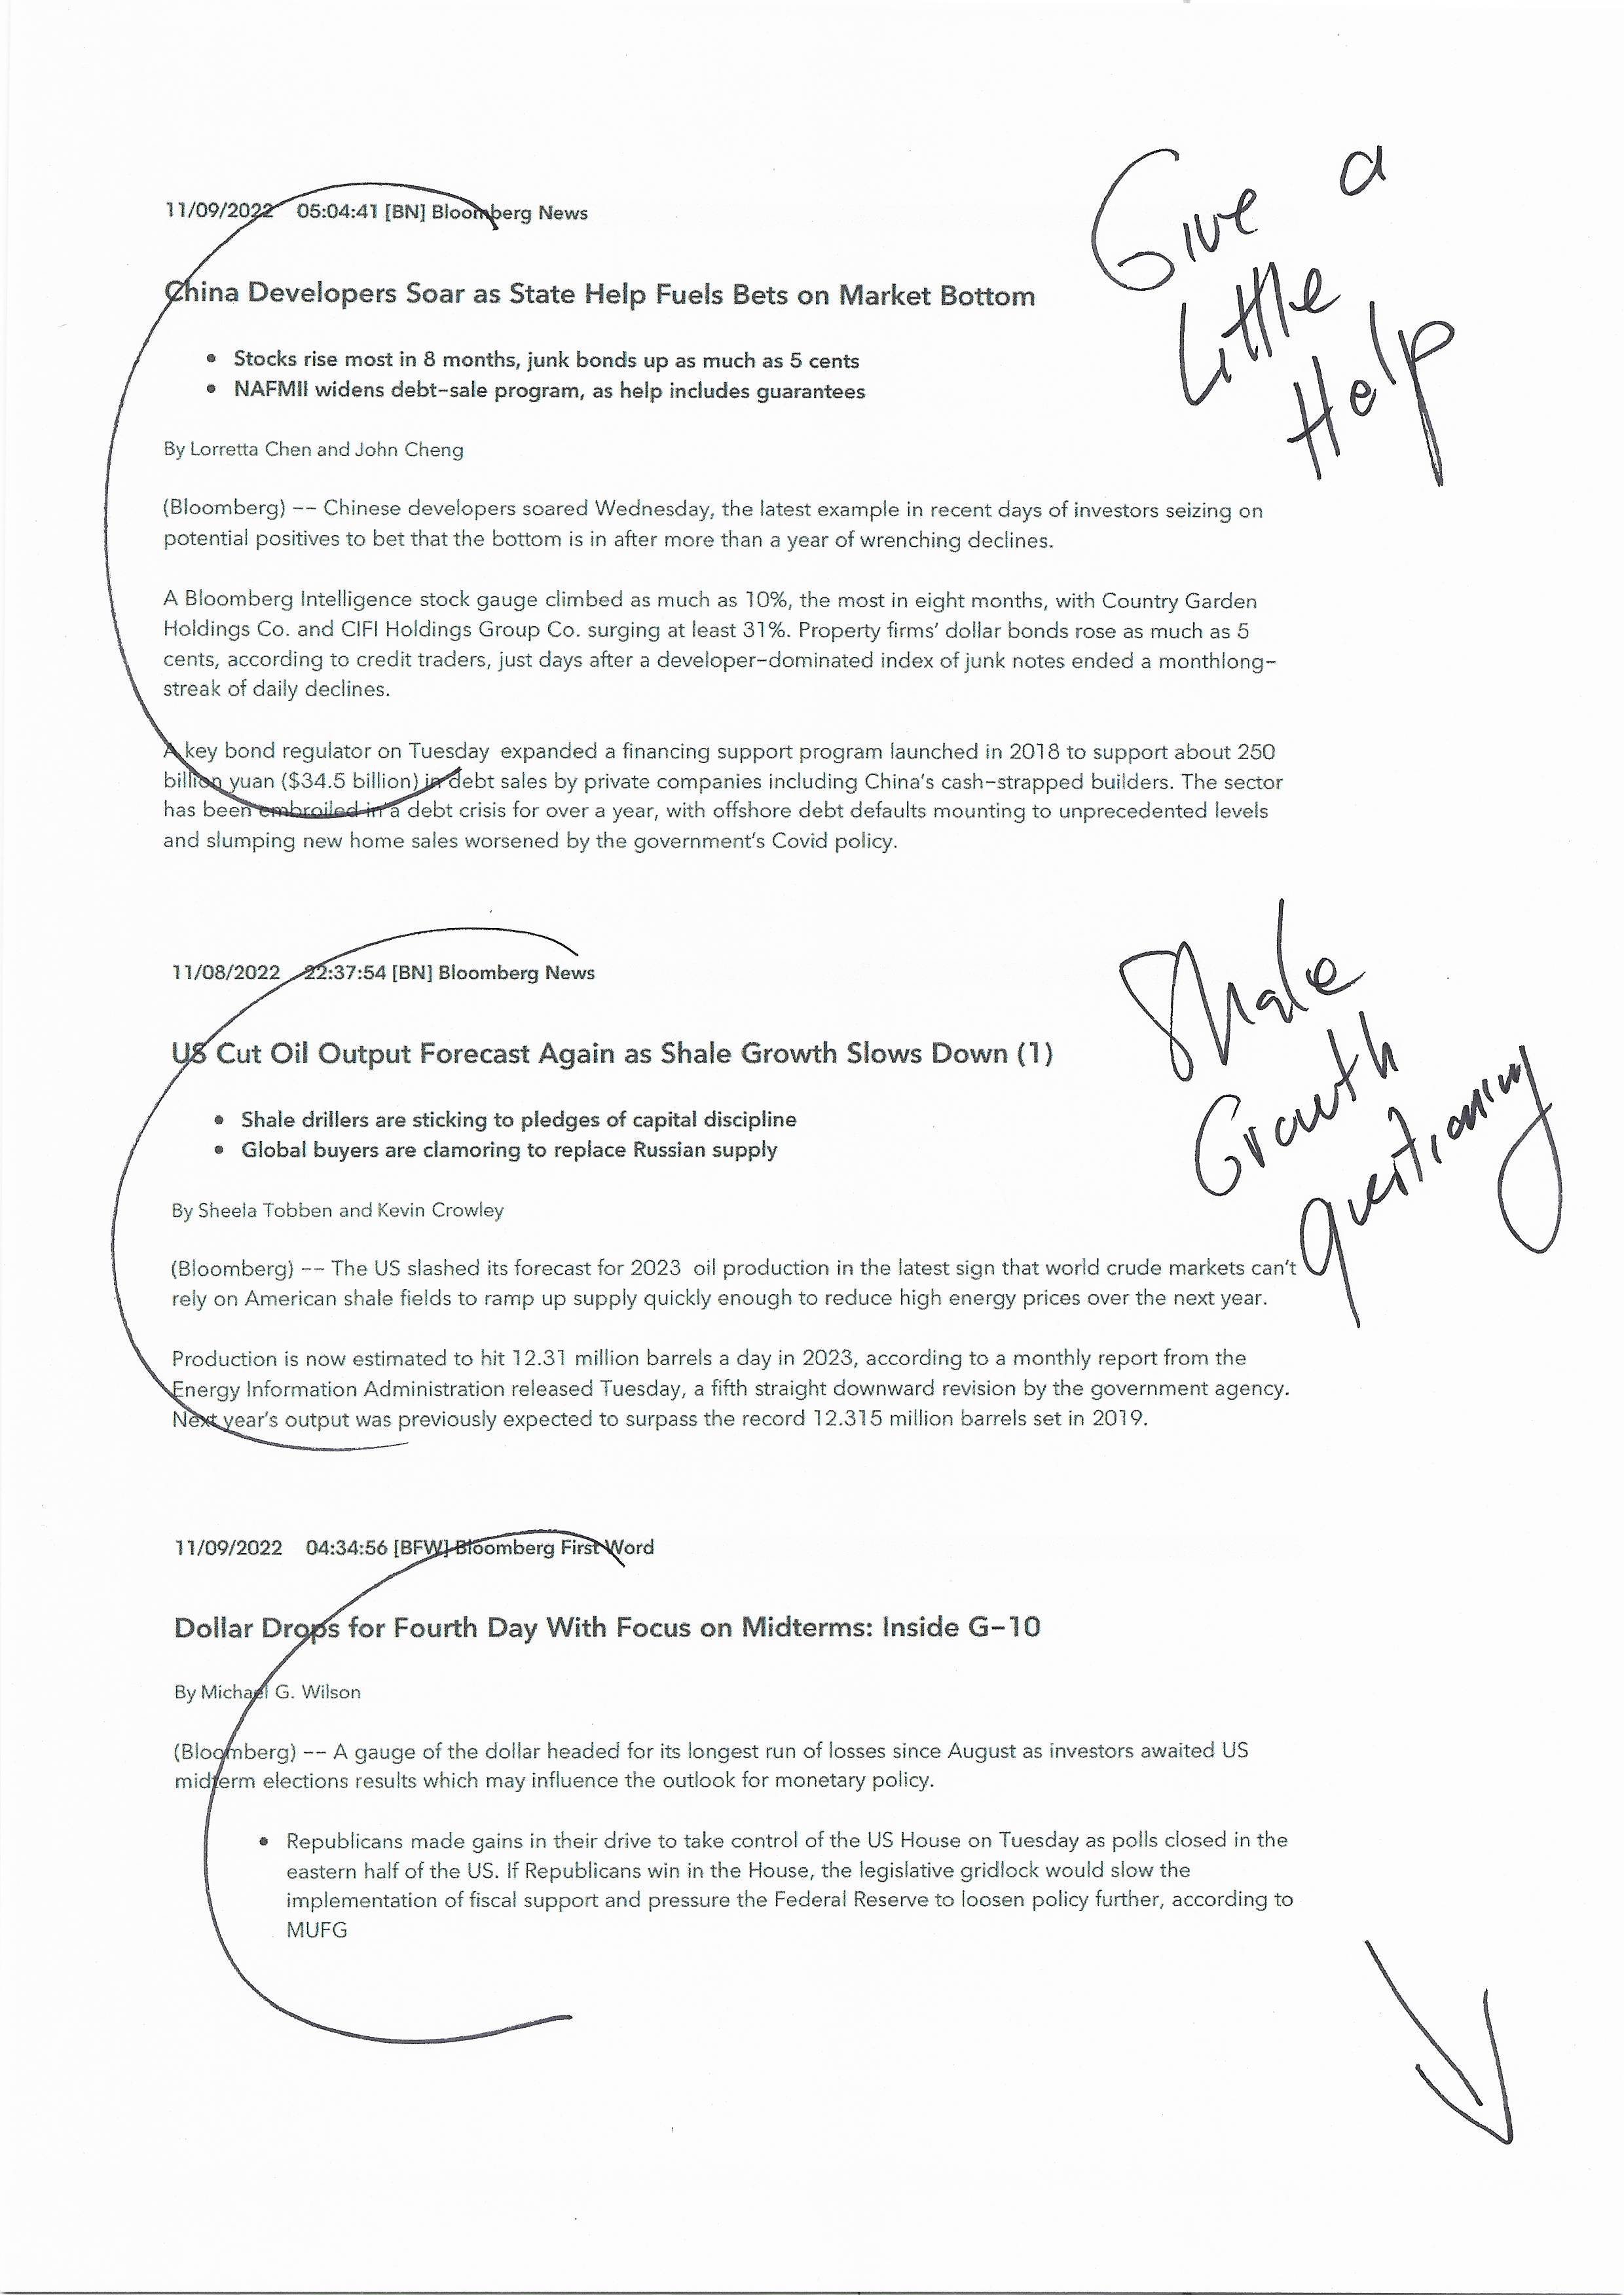 11/09/2022 05:04:41 [BN] Bloomberg News
China Developers Soar as State Help Fuels Bets on Market Bottom
• Stocks rise most in 8 months, junk bonds up as much as 5 cents
• NAFMII widens debt-sale program, as help includes guarantees
By Lorretta Chen and John Cheng
(Bloomberg) -- Chinese developers soared Wednesday, the latest example in recent days of investors seizing on
potential positives to bet that the bottom is in after more than a year of wrenching declines.
A Bloomberg Intelligence stock gauge climbed as much as 10%, the most in eight months, with Country Garden
Holdings Co. and CIFI Holdings Group Co. surging at least 31%. Property firms' dollar bonds rose as much as 5
cents, according to credit traders, just days after a developer-dominated index of junk notes ended a monthlong-
streak of daily declines.
A key bond regulator on Tuesday expanded a financing support program launched in 2018 to support about 250
billion yuan ($34.5 billion) in debt sales by private companies including China's cash-strapped builders. The sector
has been embroiled in a debt crisis for over a year, with offshore debt defaults mounting to unprecedented levels
and slumping new home sales worsened by the government's Covid policy.
Give a
Little
Help
11/08/2022 22:37:54 [BN] Bloomberg News
US Cut Oil Output Forecast Again as Shale Growth Slows Down (1)
• Shale drillers are sticking to pledges of capital discipline
• Global buyers are clamoring to replace Russian supply
By Sheela Tobben and Kevin Crowley
(Bloomberg) -- The US slashed its forecast for 2023 oil production in the latest sign that world crude markets can't
rely on American shale fields to ramp up supply quickly enough to reduce high energy prices over the next year.
Production is now estimated to hit 12.31 million barrels a day in 2023, according to a monthly report from the
Energy Information Administration released Tuesday, a fifth straight downward revision by the government agency.
Next year's output was previously expected to surpass the record 12.315 million barrels set in 2019.
Shale
Growth
questioning
11/09/2022 04:34:56 [BFW] Bloomberg First Word
Dollar Drops for Fourth Day With Focus on Midterms: Inside G-10
By Michael G. Wilson
(Bloomberg) -- A gauge of the dollar headed for its longest run of losses since August as investors awaited US
midterm elections results which may influence the outlook for monetary policy.
• Republicans made gains in their drive to take control of the US House on Tuesday as polls closed in the
eastern half of the US. If Republicans win in the House, the legislative gridlock would slow the
implementation of fiscal support and pressure the Federal Reserve to loosen policy further, according to
MUFG